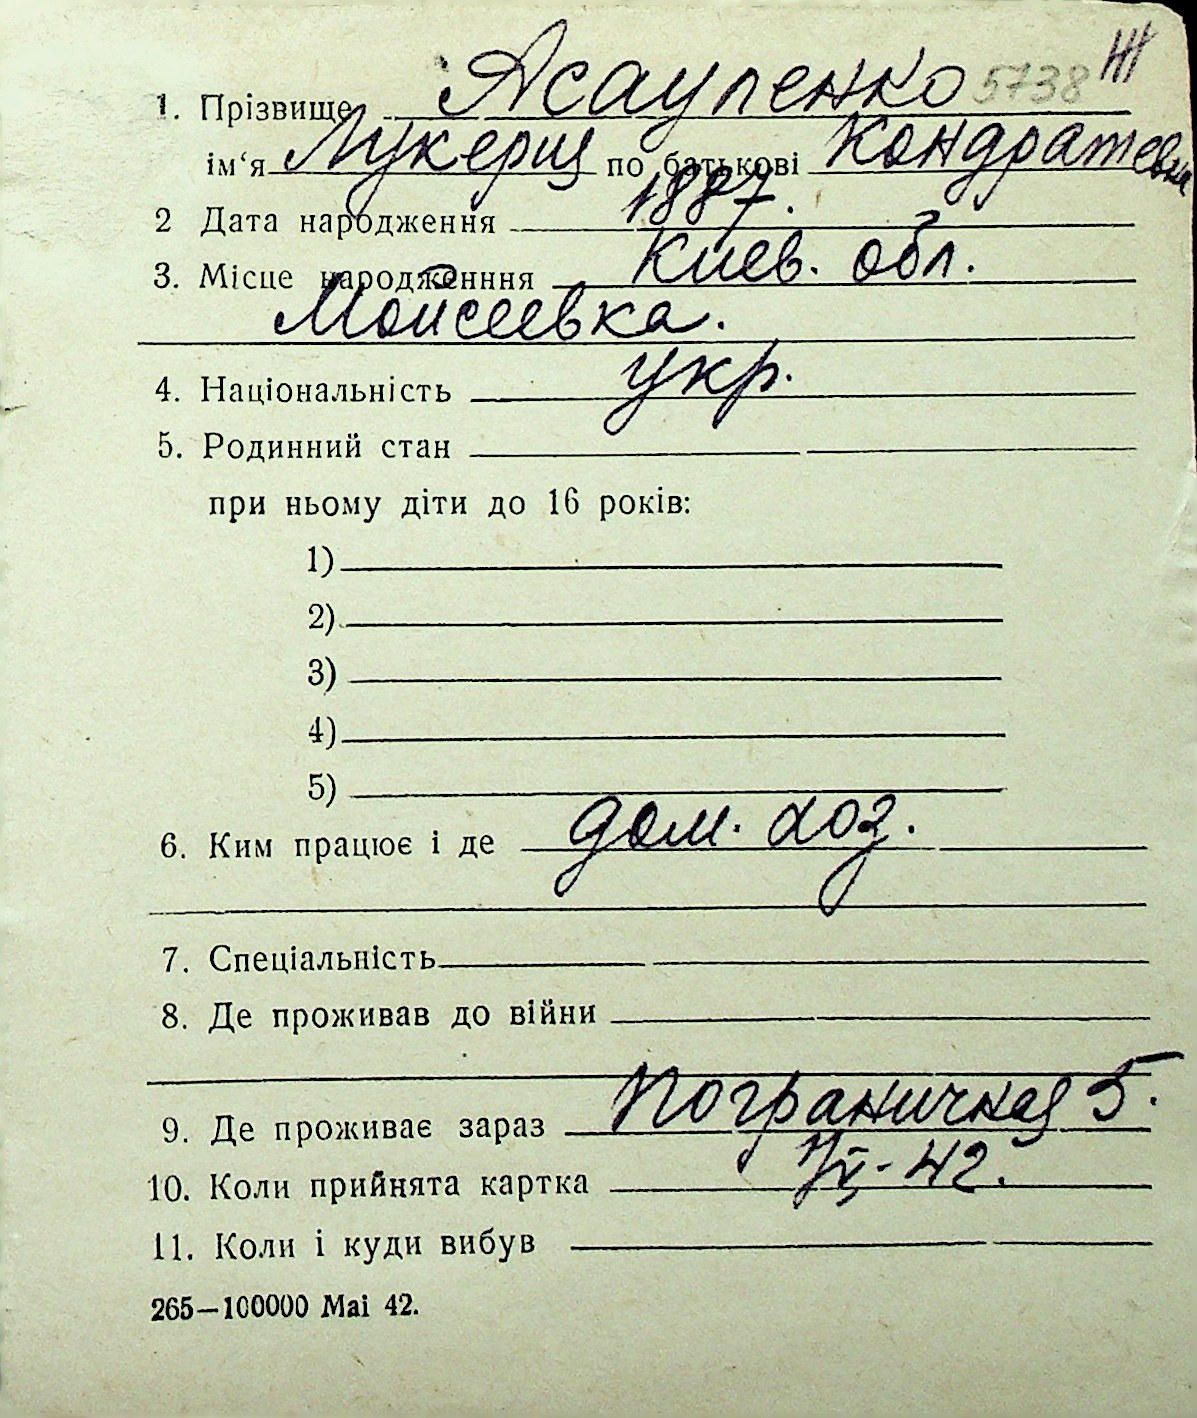 1. Прізвище Ясауленко 5738 Ж
ім‘я Лукерия по батькові Кондратевна
2 Дата народження 1887.
3. Місце народженння Киев. обл.
Моисеевка.
4. Національність укр.
5. Родинний стан
при ньому діти до 16 років:
1)
2)
3)
4)
5)
6. Ким працює і де дом. хоз.
7. Спеціальність
8. Де проживав до війни
9. Де проживає зараз Пограничная 5.
10. Коли прийнята картка 42.
11. Коли і куди вибув
265—100000 Mai 42.